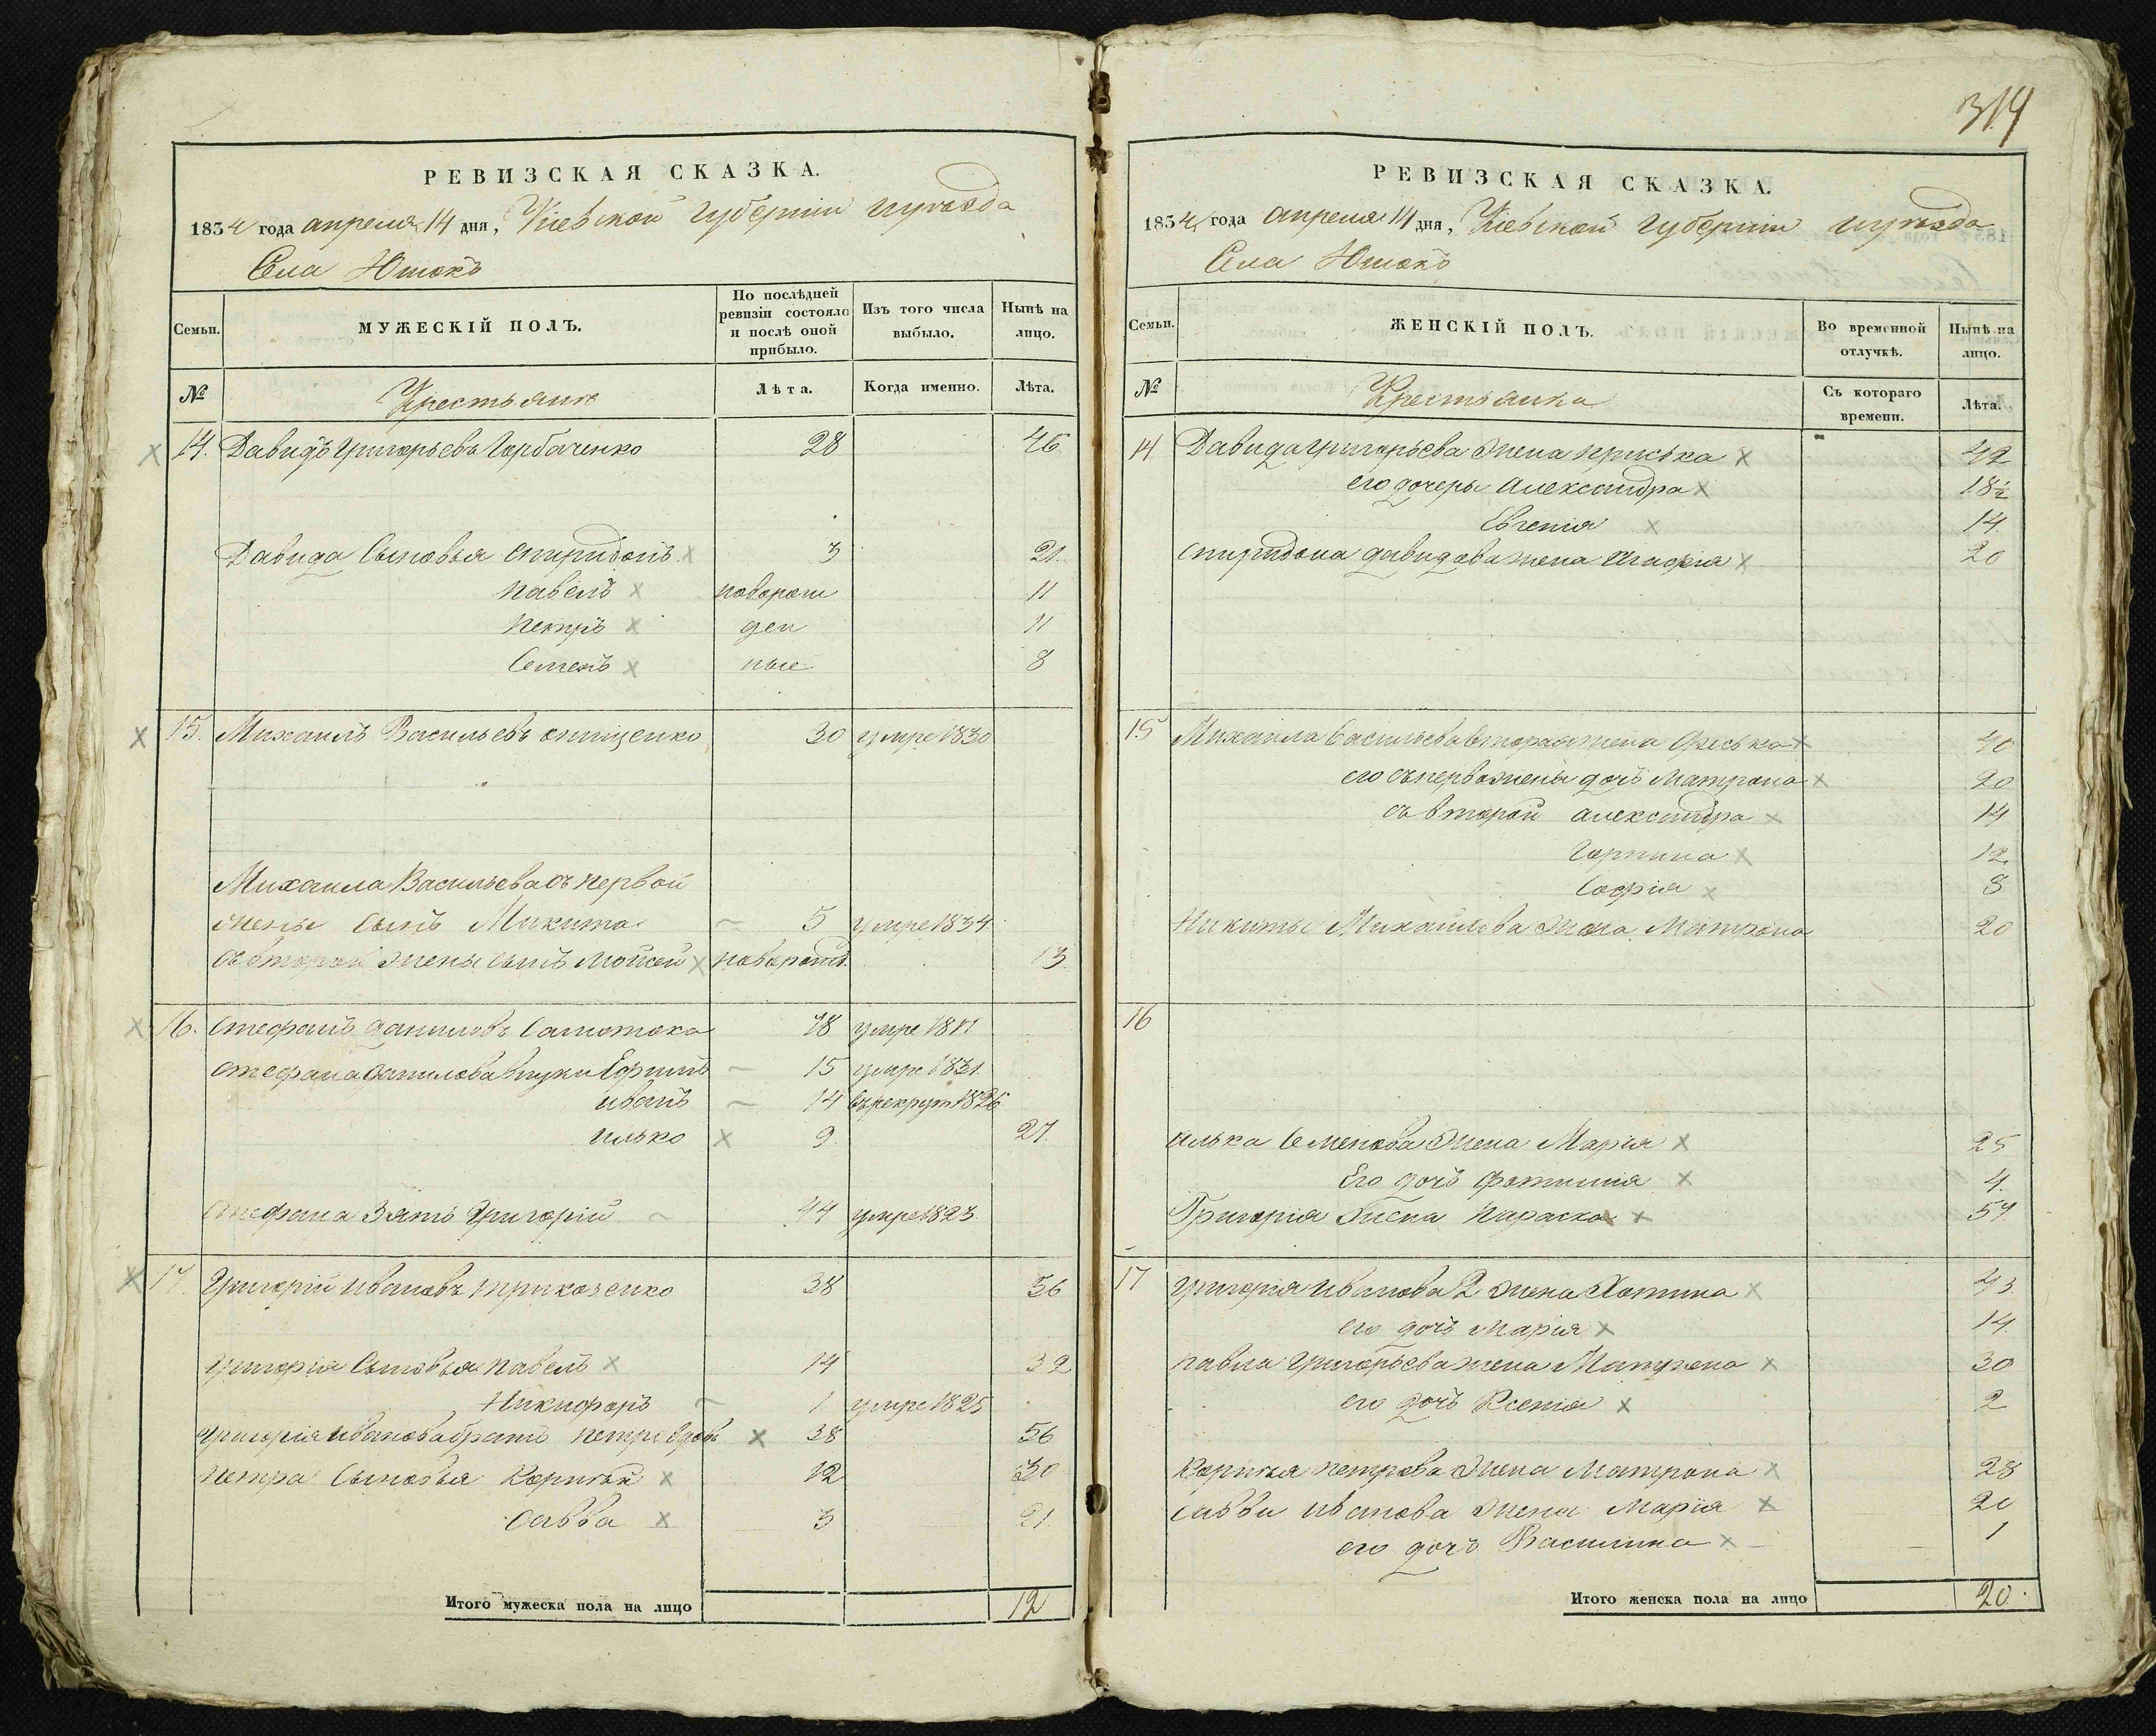 314
РЕВИЗСКАЯ СКАЗКА.
1834 года апреля 14 дня, Кіевской губерніи и уезда
Села Юшокъ
Семьи.
МУЖЕСКІЙ ПОЛЪ.
По послѣдней ревизіи состояло и послѣ оной прибыло.
Изъ того числа выбыло.
Нынѣ на лицо.
№
Крестьяне
Лѣта.
Когда именно.
Лѣта.
14. Давидъ Григорьевъ Горбаченко 28 46
Давида Сыновья Спиридонъ 3 21.
павелъ новорож 11
петръ ден 11
Семенъ ные 8
15. Михаилъ Васильевъ онищенко 30 умре 1830
Михаила Васильева съ первой
жены сынъ Микита 5 умре 1834
съ второй жены сынъ Мойсей новорожд. 13
16. Стефанъ даниловъ 78 умре 18
Стефана данилова внуки Ефимъ 15 умре 1831.
иванъ 14 въ рекрут 1826
илько 9. 27.
Стефана Зять Григорій 44 умре 1823.
17. Григорій ивановъ 38 56
Григорія Сыновья павелъ 14 32
Никифоръ 1 умре 1825
Григорія иванова братъ петръ 38 56
петра Сыновья Корнѣй 12 30
Савва 3 21.
Итого мужеска пола на лицо 12
РЕВИЗСКАЯ СКАЗКА.
1834 года апреля 14 дня, Кіевской губерніи и уезда
Села Юшокъ
Семьи.
ЖЕНСКІЙ ПОЛЪ.
Во временной отлучкѣ.
Нынѣ на лицо.
№
Крестьянка
Съ котораго времени.
Лѣта.
14 Давида григорьева жена приська 42
его дочеры александра 18½
Евгенія 14.
Спиридона давидова жена 20
15 Михаила васильева вторая жена феська 40
его съ перво жены дочъ Матрона 20
съ второй александра 14
Горпина 12.
Софія 8
Никиты Михайлова жена Матрона 20
16
илька Семенова жена Марія 25
Его дочъ фотинія 4.
Григорія жена параска 54
17 григорія иванова 2 жена Хотина 43
его дочъ марія 14.
павла григорьева жена Матрена 30
его дочъ Ксенія 2
Корнѣя петрова жена Матрона 28
саввы иванова жена Марія 20
его дочъ Василина 1
Итого женска пола на лицо 20.